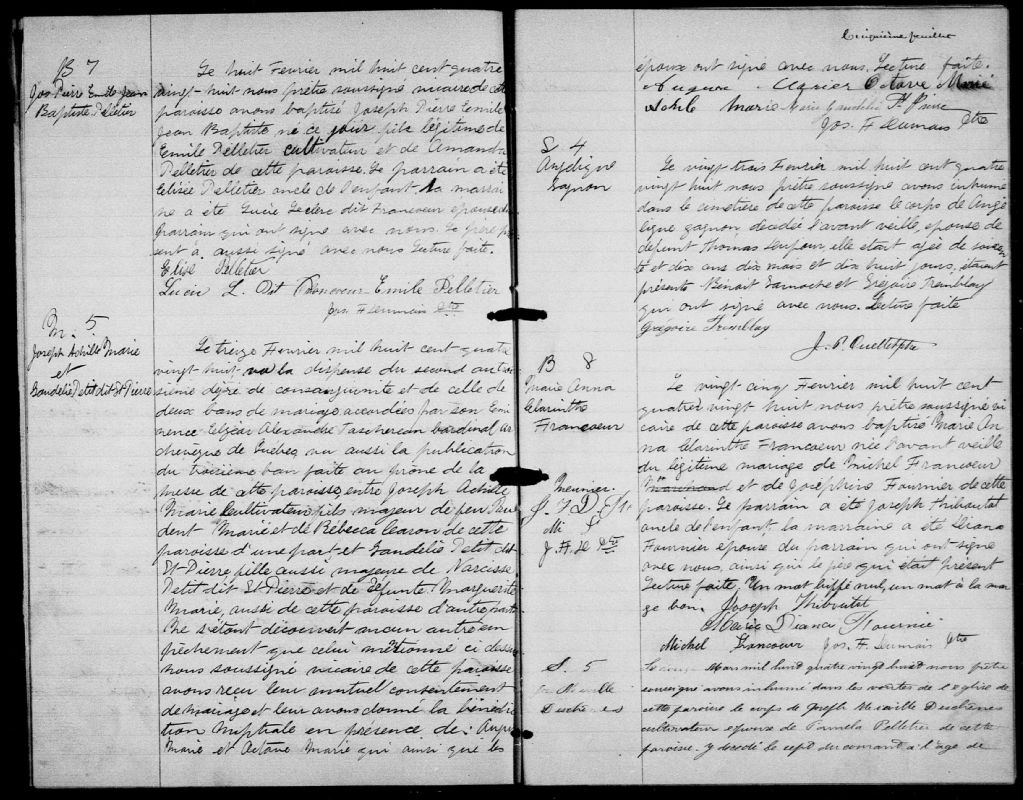 B 7
Jos Pierre Emile Jean
Baptiste Pelletier
Le huit Fevrier mil huit cent quatre
vingt-huit nous prêtre soussigné vicaire de cette
paroisse avons baptisé Joseph Pierre Emile
Jean Baptiste né ce jour fils légitime de
Emile Pelletier cultivateur et de Amanda
Pelletier de cette paroisse. Le parrain a été
Elisée Pelletier oncle de l'enfant. La marrai
ne a été Lucie Leclerc dit Francoeur epouse du
parrain qui ont signé avec nous. Le père pre
sent à aussi signé avec nous Lecture faite.
Elise Pelletier
Lucie L. Dit Francoeur Emile Pelletier
Jos. F Dumais Ptre
M. 5
Joseph Achille Marié
et
Gaudelie Petit dit St Pierre
Le treize Fevrier mil huit cent quatre
vingt-huit vu la dispense du second au troi
sieme dégré de consanguinité et de celle de
deux bans de mariage accordées par son Emi
nence Elzéar Alexandre Taschereau Cardinal Ar
chevêque de Quebec vu aussi la publication
du troisieme ban faite au prône de la
messe de cette paroisse, entre Joseph Achille
Marié Cultivateur fils majeur de feu Pru
dent Marié et de Rébecca Caron de cette
paroisse d'une part et Gaudelie Petit dit
St-Pierre fille aussi majeure de Narcisse
Petit dit St-Pierre et de Défunte Marguerite
Marié, aussi de cette paroisse d'autre part
Ne s'étant découvert aucun autre em
pêchement que celui mentionné ci dessus
nous soussigné vicaire de cette paroisse
avons reçu leur mutuel consentement
de mariage et leur avons donné la bénédic
tion Nuptiale en présence de: Augus
Marié et Octave Marié qui ainsi que les
Cinquième feuillet
époux ont signé avec nous. Lecture faite.
Octave Marié
Marie Gaudelie St Pierre
Jos. F Dumais Ptre
S 4
Angélique
Gagnon
Le vingt trois Fevrier mil huit cent quatre
vingt huit nous prêtre soussigné avons inhumé
dans le cimetière de cette paroisse le corps de Angé
lique gagnon, décédée l'avant veille, epouse de
défunt Thomas elle était agée de soixan
te et dix ans dix mois et dix huit jours, étaient
présents Benoit Lamoche et Grégoire Tremblay
qui ont signé avec nous. Lecture faite
Grégoire Tremblay
J. P. Ouellet Ptre
B 8
Marie Anna
Clarinthe
Francoeur
Le vingt cinq Fevrier mil huit cent
quatre vingt huit nous prêtre soussigné vi
caire de cette paroisse avons baptisé Marie An
na Clarinthe Francoeur née l'avant veille
du légitime mariage de Michel Francoeur
Marchand et de Joséphine Fournier de cette
paroisse. Le parrain a été Joseph Thiboutot
oncle de l'enfant, la marraine a été Diana
Fournier épouse du parrain qui ont signé
avec nous, ainsi que le père qui était présent
Lecture faite. Un mot biffé nul, un mot à la mar
ge bon. Joseph Thiboutot
Marie Diana Fournier
Michel Francoeur Jos. F. Dumais Ptre
meunier
J. T D. F
Mi F
J. F. D Ptre
S. 5
Duchenes
Mars mil huit quatre vingt huit nous prêtre
soussigné avons inhumé dans les voûtes de l'église de
cette paroisse le corps de Joseph Duchênes
cultivateur epoux de Pamela Pelletier de cette
paroisse. y décédé le sept du courant a l'age de